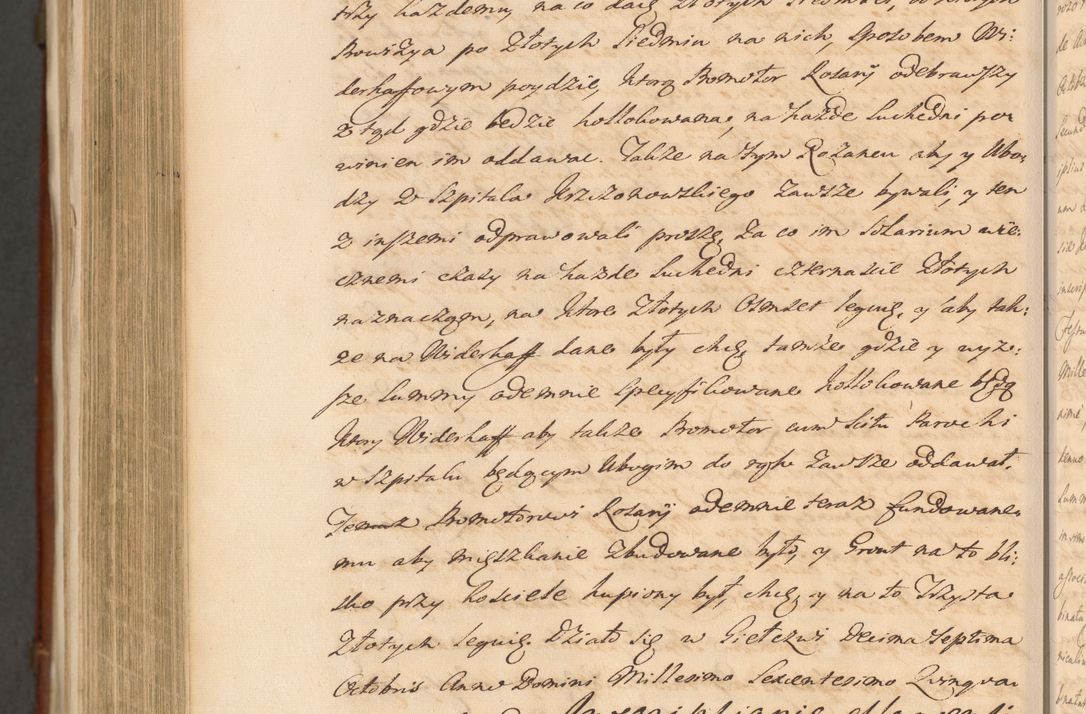 trzy każdemu, na co daię Złotych Siedmset, od których
Prowizya po Złotych Siedmiu na nich, sposobem Wi:
derhaffowym poydzie, którą Promotor Rosarÿ odebrawszy
z tąd gdzie będzie kollokowana, na każde Suchedni po:
winien im oddawac. Także na tym Rozancu aby y Ubo:
dzy z Szpitala Krzczonowskiego zawsze bywali, y ten
z inszemi odprawowali proszę, za co im Solarium wie:
cznemi czasy na każde Suchedni czternascie Złotych
naznaczam, na które Złotych Osmset leguię, y aby tak:
że na Widerhaff dane były chcę, tamże gdzie y wyz:
sze Summy odemnie specyfikowane kollokowane będą
który Widerhaff aby także Promotor cum scitu Parochi
w Szpitalu będącym Ubogim do rąk zawsze oddawał.
Temuz Promotorowi Rosarÿ odemnie teraz fundowane:
mu aby mięszkanie zbudowane było, y Grunt na to bli:
sko przy kosciele kupiony był, chcę, y na to Trzysta
Złotych leguię. Działo się w Giełczwi Decima Septima
Octobris Anno Domini Millesimo Sexcentesimo Quinqua: